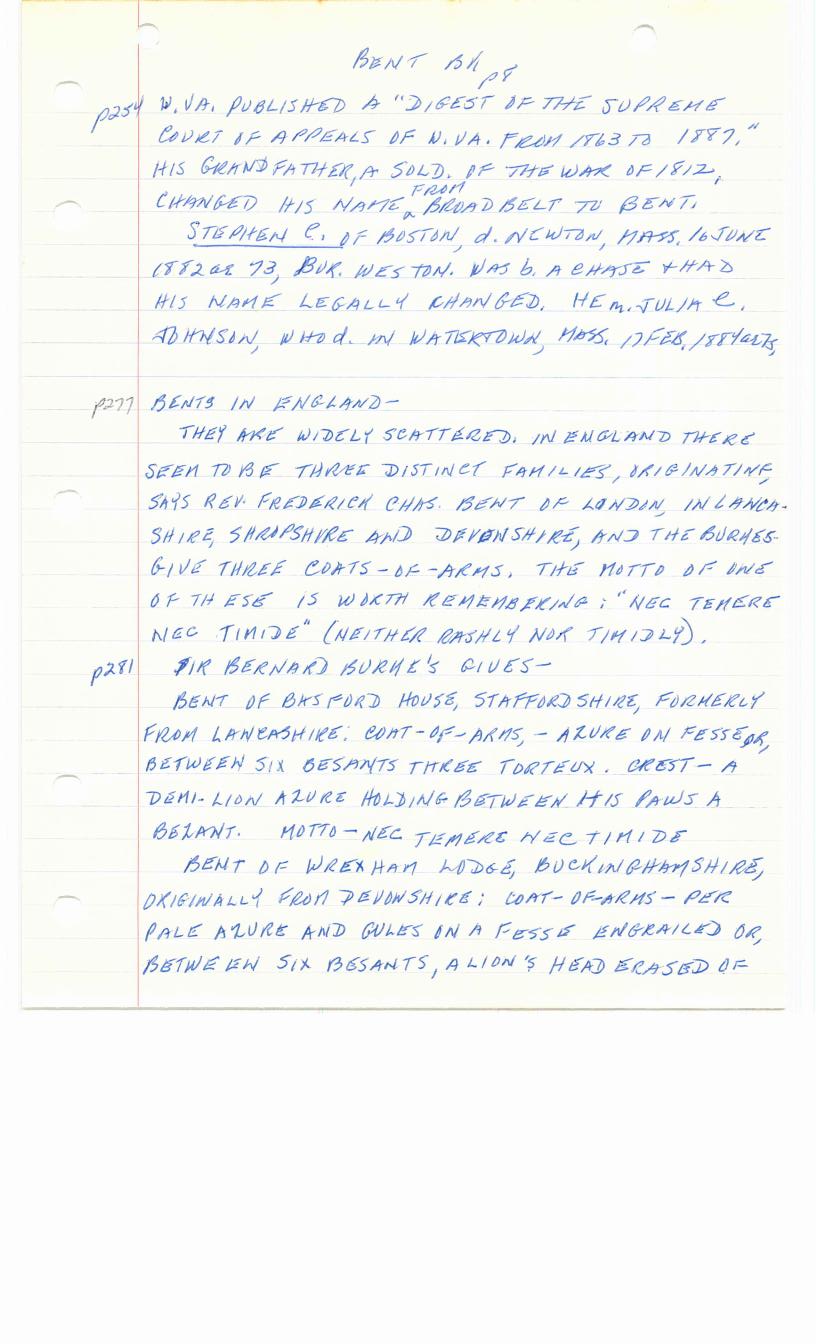 BENT BK
p8
p254 W.VA. PUBLISHED A "DIGEST OF THE SUPREME
COURT OF APPEALS OF W.VA. FROM 1863 TO 1887."
HIS GRANDFATHER, A SOLD. OF THE WAR OF 1812,
CHANGED HIS NAME FROM BROADBELT TO BENT.
STEPHEN C. OF BOSTON, d. NEWTON, MASS. 16 JUNE
1882 ae 73, BUR. WESTON. WAS b. A CHASE + HAD
HIS NAME LEGALLY CHANGED. HE m. JULIA C.
JOHNSON, WHO d. IN WATERTOWN, MASS. 17 FEB. 1884 ae 75,
p277 BENTS IN ENGLAND—
THEY ARE WIDELY SCATTERED. IN ENGLAND THERE
SEEM TO BE THREE DISTINCT FAMILIES, ORIGINATING,
SAYS REV. FREDERICK CHAS. BENT OF LONDON, IN LANCA-
SHIRE, SHROPSHIRE AND DEVONSHIRE, AND THE BURKES
GIVE THREE COATS-OF-ARMS. THE MOTTO OF ONE
OF THESE IS WORTH REMEMBERING: "NEC TEMERE
NEC TIMIDE" (NEITHER RASHLY NOR TIMIDLY).
p281 SIR BERNARD BURKE'S GIVES—
BENT OF BASFORD HOUSE, STAFFORDSHIRE, FORMERLY
FROM LANCASHIRE: COAT-OF-ARMS, - AZURE ON FESSE OR,
BETWEEN SIX BESANTS THREE TORTEUX. CREST - A
DEMI-LION AZURE HOLDING BETWEEN HIS PAWS A
BEZANT. MOTTO - NEC TEMERE NEC TIMIDE
BENT OF WREXHAM LODGE, BUCKINGHAMSHIRE,
ORIGINALLY FROM DEVONSHIRE: COAT-OF-ARMS - PER
PALE AZURE AND GULES ON A FESSE ENGRAILED OR,
BETWEEN SIX BESANTS, A LION'S HEAD ERASED OF